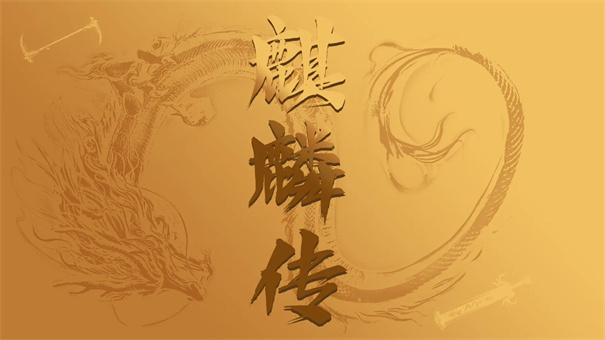 麒麟传